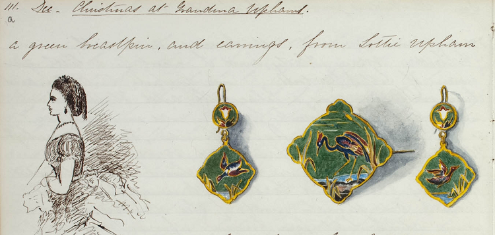 111. Dec. Christmas at Grandma Upham's.
a
a green breastpin, and earrings, from Lottie Upham